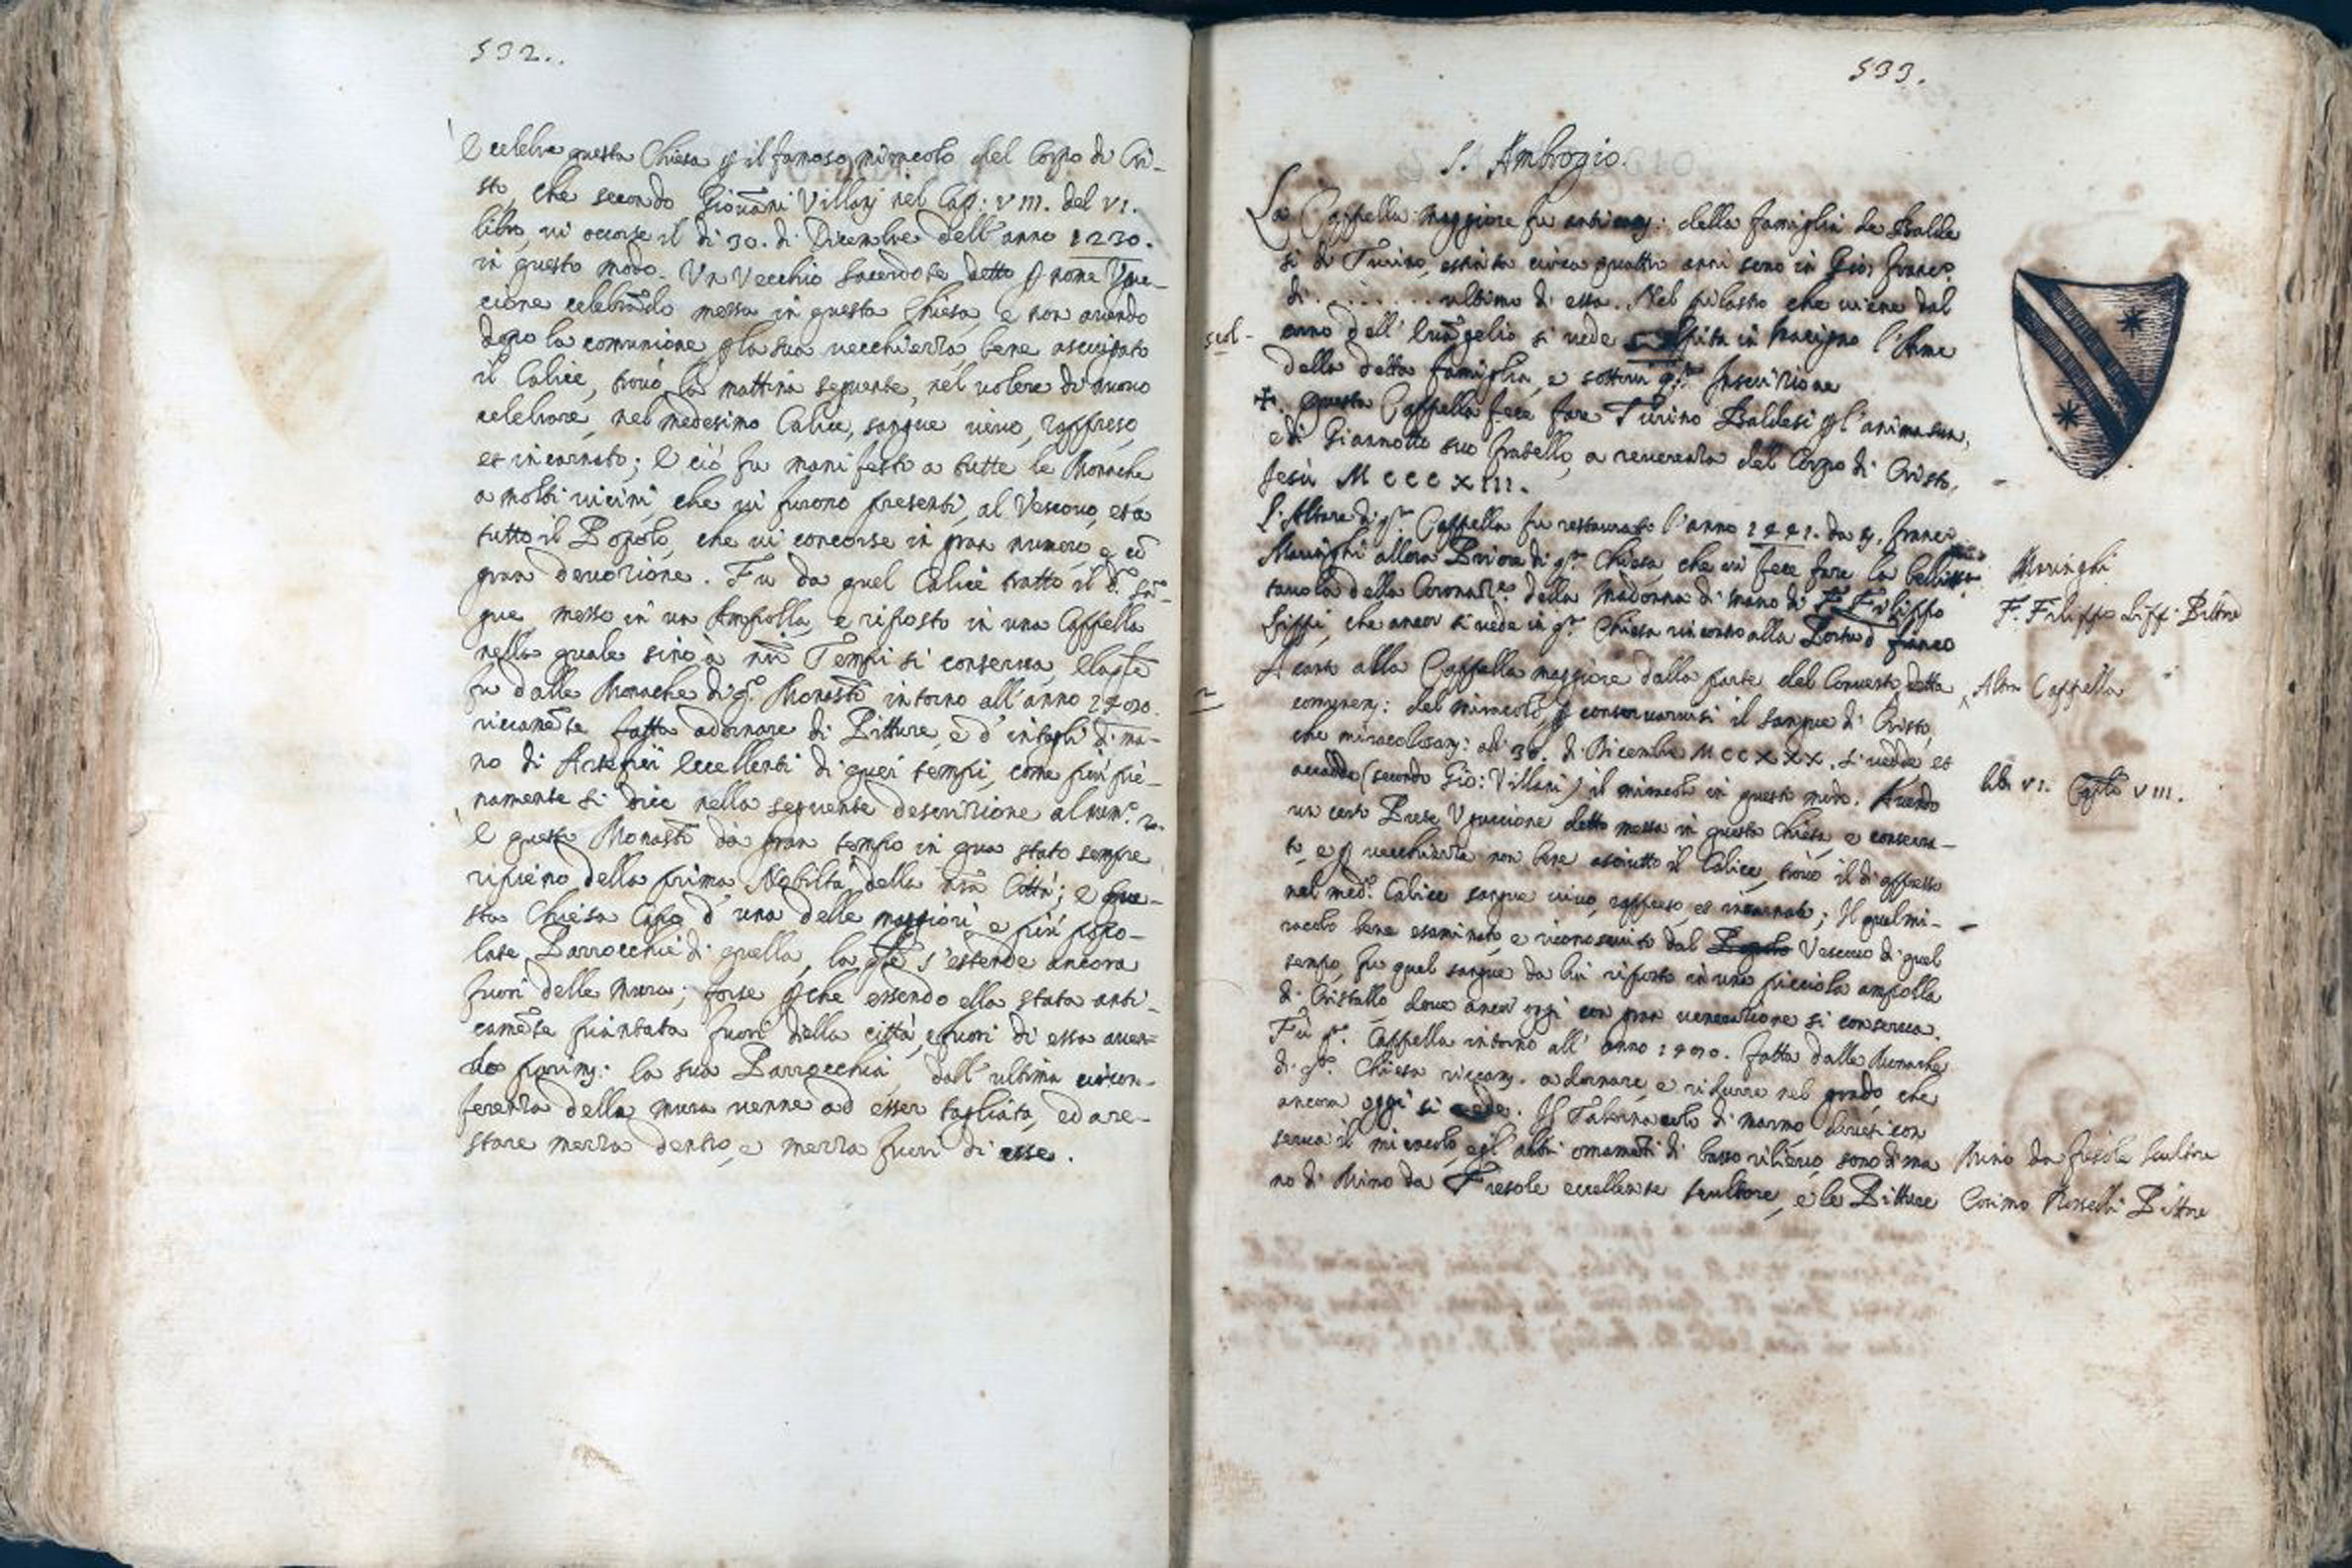 532.
È celebre questa Chiesa p il famoso miracolo del Corpo di Cri-
sto, che secondo Giovāni Villanj nel Cap: VIII. del VI.
libro, vi occorse il dì 30. di Dicembre dell'anno 1230.
in questo modo. Un Vecchio sacerdote detto p nome Uguc-
cione celebrādo messa in questa Chiesa, e non avendo
dopo la comunione p la sua vecchiezza, bene asciugato
il Calice, trovò la mattina seguente, nel volere di nuovo
celebrare, nel medesimo Calice, sangue vivo, rappreso,
et incarnato; E ciò fu manifesto a tutte le Monache
a molti vicini, che vi furono presenti, al Vescovo, et a
tutto il Popolo, che vi concorse in gran numero, e cō
gran devozione. Fu da quel Calice tratto il d.º sā-
gue, messo in un Ampolla, e riposto in una Cappella
nella quale sino à nri Tempi si conserva,
fu dalle Monache di q.º Monastº intorno all'anno
riccamēte fatta adornare di Pitture, e d'intagli di ma-
no di Artefici Eccellenti di quei tempi, come più pie-
namente si dice nella seguente descrizione al num.º 2.
E questo Monastº da gran tempo in qua stato sempre
ripieno della prima Nobiltà della nrā Città; e que-
sta Chiesa Capo d'una delle maggiori e più popo-
late Parrocchie di quella, la qle s'estende ancora
fuori delle Mura; forse pche essendo ella stata anti-
camēte piantata fuori della città, e fuori di essa aven-
do parimj: la sua Parrocchia, dall'ultima circon-
ferenza della mura venne ad esser tagliata, ed a re-
stare mezza dentro, e mezza fuori di esse.
533.
S. Ambrogio.
La Cappella maggiore fu anticamj: della famiglia de Balde
si di Turino, estinta circa quattro anni sono in Gio: Franc.º
di . . . . . . . ultimo di essa. Nel pilastro che viene dal
scol-
corno dell'Evāgelio si vede pita in macigno l'Arme
della detta famiglia, e sottovi q.ta Inscrizione
✠. Questa Cappella fece fare Turino Baldesi p l'anima sua,
e di Giannotto suo fratello, a reverenza del Corpo di Cristo,
Jesù MCCCXIII.
L'Altare di q.ta Cappella fu restaurato l'anno 1441. da S. Franc.º
Maringhi allora Priore di q.ta Chiesa, che vi fece fare la
tavola della Coronaz.e della Madonna di mano di F. Filippo
Lippi, che ancor si vede in q.ta Chiesa rincontro alla Porta d fianco
Maringhi
F. Filippo Lippi Pittore
Accanto alla Cappella maggiore dalla parte del Convento, detta
Altra Cappella
2
comunemj: del miracolo, p conservarvisi il sangue di Cristo,
che miracolosamj: adì 30. di Dicembre MCCXXX. si vedde et
accadde (secondo Gio: Villani) il miracolo in questo modo. Avendo
lib: VI. Capto VIII.
un certo Prete Uguccione detto messa in questa Chiesa, e consecra-
to, e p vecchiezza non bene asciutto il Calice, trovò il dì appresso
nel med.º Calice sangue vivo, rappreso, et incarnato; Il qual mi-
racolo bene esaminato, e riconosciuto dal Vescovo di quel
tempo, fu quel sangue da lui riposto in una picciola ampolla
di Cristallo, dove ancor oggi con gran venerazione si conserva.
Fu q.ta Cappella intorno all'anno fatta dalle Monache
di q.ta Chiesa riccamj. adornare, e ridurre nel grado che
ancora oggi si vede. Il Tabernacolo di marmo dove si con
serva il miracolo, e gl'altri ornamēti di basso rilievo, sono di ma
no di Mino da Fiesole eccellente scultore, e le Pitture
Mino da Fiesole Scultore
Cosimo Rosselli Pittore